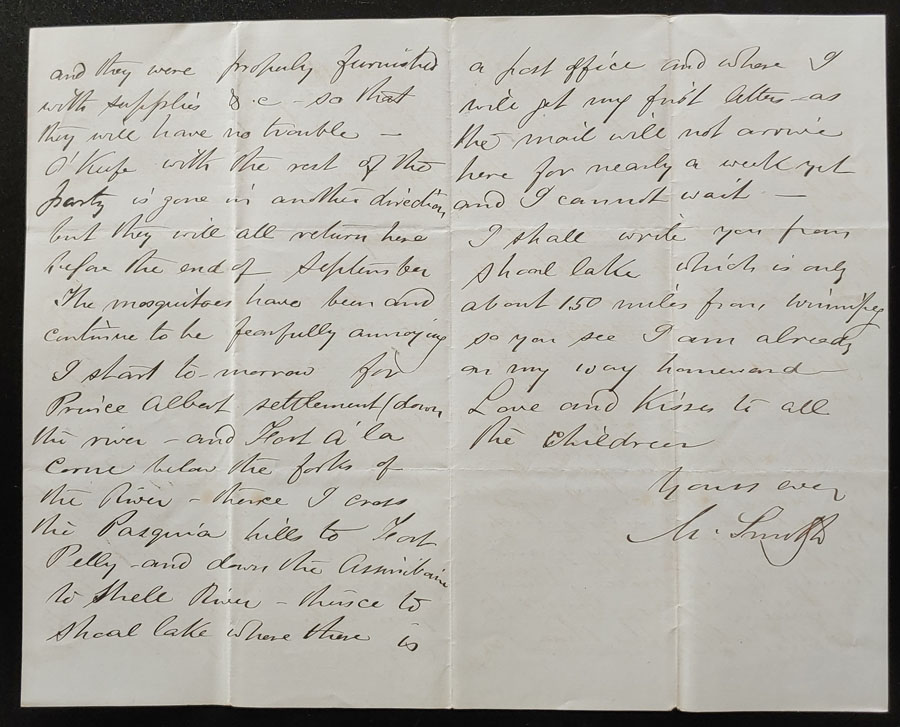 and they were properly furnished
with supplies &.c - so that
they will have no trouble -
O'Keefe with the rest of the
party is gone in another direction
but they will all return here
before the end of September
The mosquitoes have been and
continue to be fearfully annoying
I start to-morrow for
Prince Albert settlement (down
the river - and Fort A' la
Corne below the forks of
the River - thence I cross
the Pasquia hills to Fort
Pelly - and down the Assiniboine
to Shell River - thence to
Shoal lake where there is
a post office and where I
will get my first letters - as
the mail will not arrive
here for nearly a week yet
and I cannot wait -
I shall write you from
Shoal lake which is only
about 150 miles from Winnipeg
so you see I am already
on my way homeward -
Love and Kisses to all
the Children
Yours ever
M. Smith